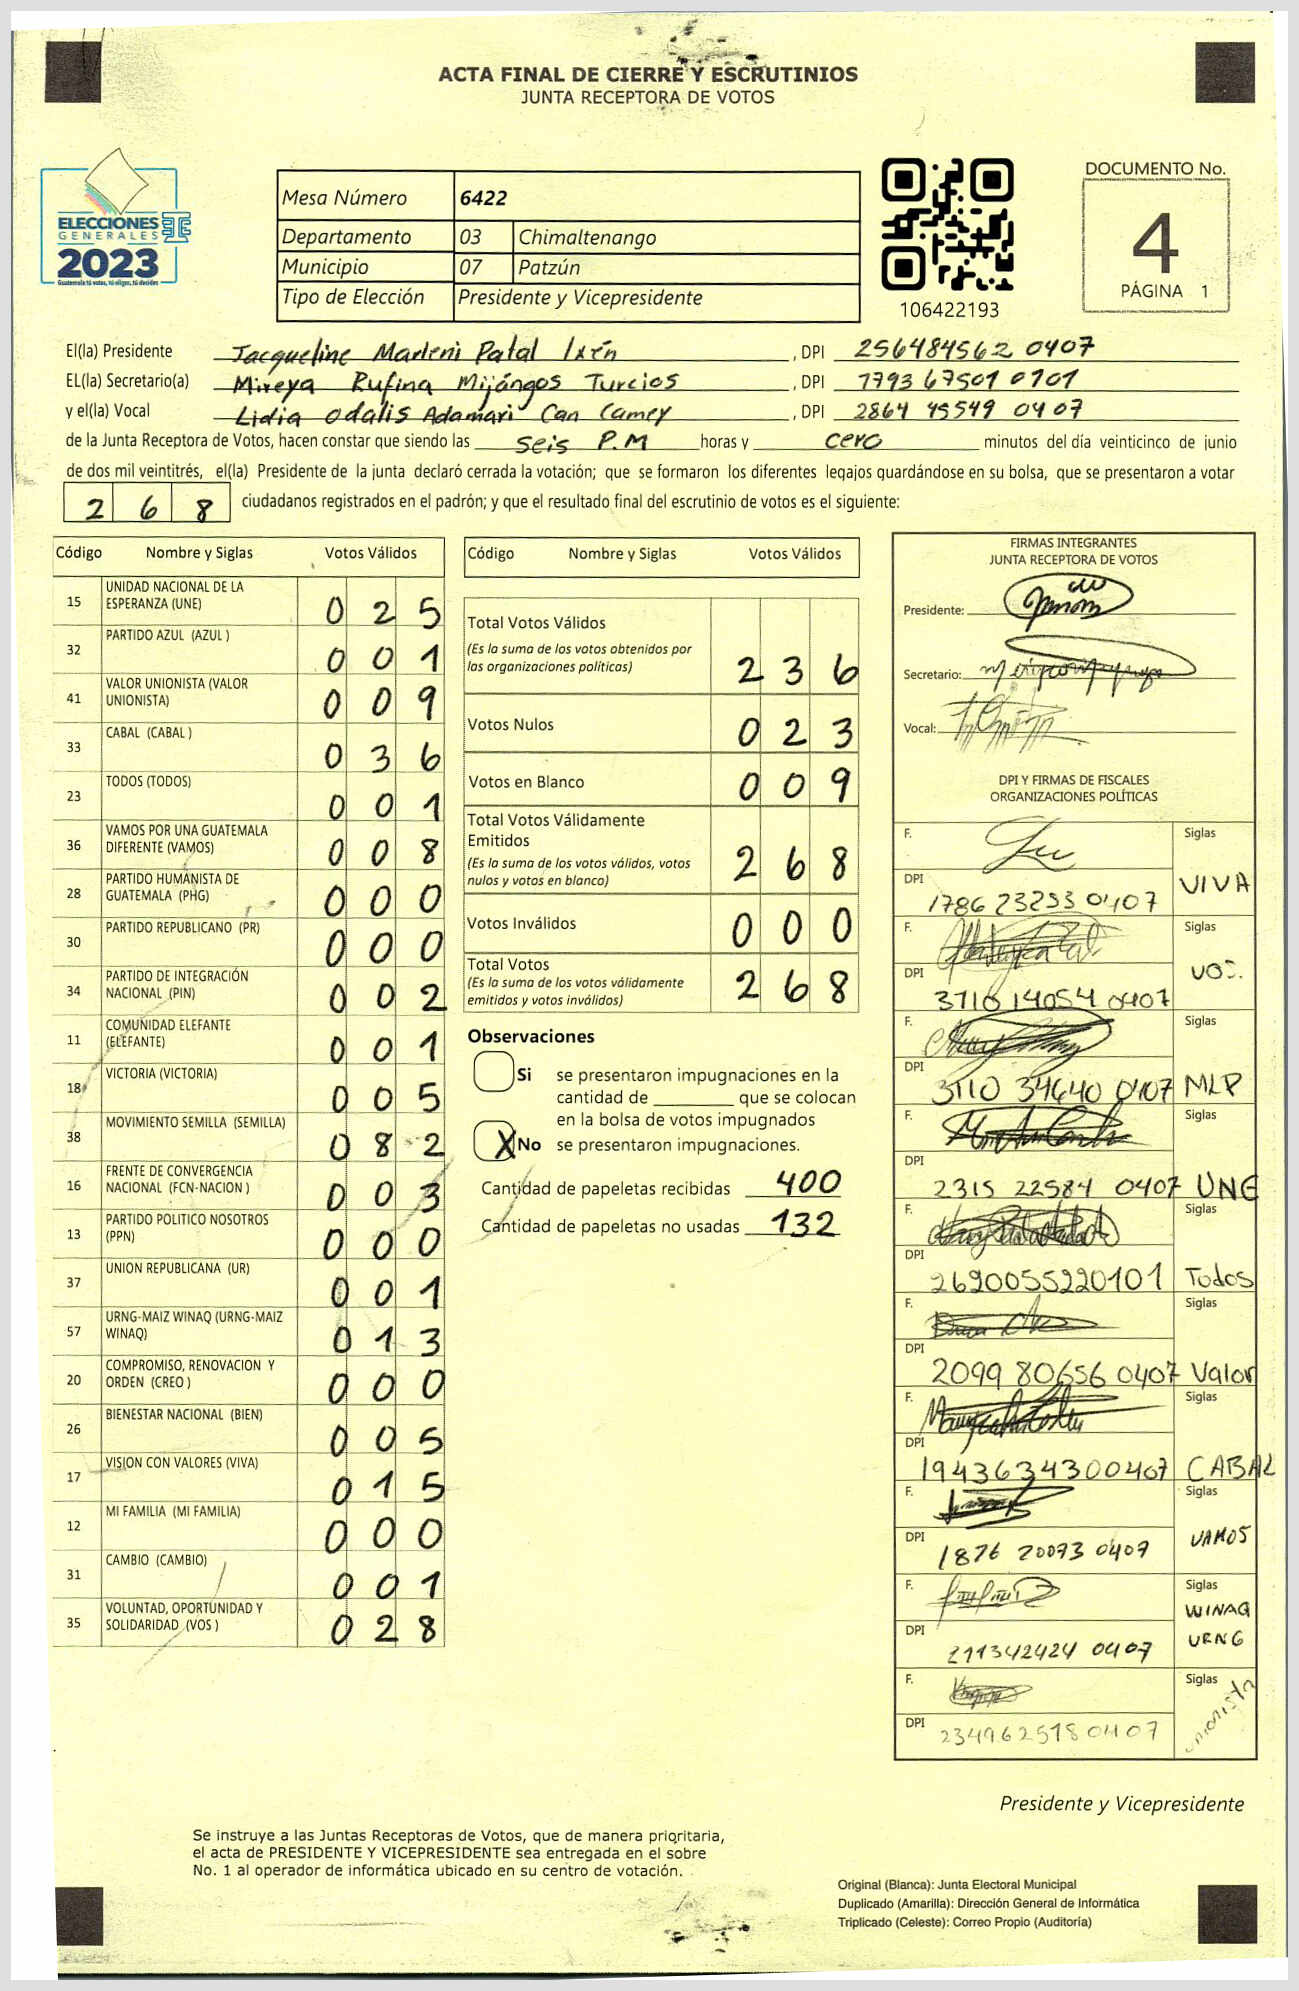 ACTA FINAL DE CIERRE Y ESCRUTINIOS
JUNTA RECEPTORA DE VOTOS
ELECCIONES
GENERALES
2023
Guatemala tú votas, tú eliges, tú decides
Mesa Número 6422
Departamento 03 Chimaltenango
Municipio 07 Patzún
Tipo de Elección Presidente y Vicepresidente
106422193
DOCUMENTO No.
4
PÁGINA 1
El(la) Presidente Jacqueline Marleni Patal Ixén , DPI 256484562 0407
EL(la) Secretario(a) Mireya Rufina Mijángos Turcios , DPI 1793 67501 0101
y el(la) Vocal Lidia Odalis Adamari Can Camey , DPI 2864 45549 0407
de la Junta Receptora de Votos, hacen constar que siendo las seis P.M horas y cero minutos del día veinticinco de junio
de dos mil veintitrés, el(la) Presidente de la junta declaró cerrada la votación; que se formaron los diferentes legajos guardándose en su bolsa, que se presentaron a votar
268 ciudadanos registrados en el padrón; y que el resultado final del escrutinio de votos es el siguiente:
Código Nombre y Siglas Votos Válidos
15 UNIDAD NACIONAL DE LA ESPERANZA (UNE) 025
32 PARTIDO AZUL (AZUL ) 001
41 VALOR UNIONISTA (VALOR UNIONISTA) 009
33 CABAL (CABAL ) 036
23 TODOS (TODOS) 001
36 VAMOS POR UNA GUATEMALA DIFERENTE (VAMOS) 008
28 PARTIDO HUMANISTA DE GUATEMALA (PHG) 000
30 PARTIDO REPUBLICANO (PR) 000
34 PARTIDO DE INTEGRACIÓN NACIONAL (PIN) 002
11 COMUNIDAD ELEFANTE (ELEFANTE) 001
18 VICTORIA (VICTORIA) 005
38 MOVIMIENTO SEMILLA (SEMILLA) 082
16 FRENTE DE CONVERGENCIA NACIONAL (FCN-NACION ) 003
13 PARTIDO POLITICO NOSOTROS (PPN) 000
37 UNION REPUBLICANA (UR) 001
57 URNG-MAIZ WINAQ (URNG-MAIZ WINAQ) 013
20 COMPROMISO, RENOVACION Y ORDEN (CREO ) 000
26 BIENESTAR NACIONAL (BIEN) 005
17 VISION CON VALORES (VIVA) 015
12 MI FAMILIA (MI FAMILIA) 000
31 CAMBIO (CAMBIO) 001
35 VOLUNTAD, OPORTUNIDAD Y SOLIDARIDAD (VOS ) 028
Código Nombre y Siglas Votos Válidos
Total Votos Válidos 236
(Es la suma de los votos obtenidos por
las organizaciones políticas)
Votos Nulos 023
Votos en Blanco 009
Total Votos Válidamente
Emitidos 268
(Es la suma de los votos válidos, votos
nulos y votos en blanco)
Votos Inválidos 000
Total Votos 268
(Es la suma de los votos válidamente
emitidos y votos inválidos)
Observaciones
Si se presentaron impugnaciones en la
cantidad de ________ que se colocan
en la bolsa de votos impugnados
X No se presentaron impugnaciones.
Cantidad de papeletas recibidas 400
Cantidad de papeletas no usadas 132
FIRMAS INTEGRANTES
JUNTA RECEPTORA DE VOTOS
Presidente:
Secretario:
Vocal:
DPI Y FIRMAS DE FISCALES
ORGANIZACIONES POLÍTICAS
F. Siglas
DPI 1786 23233 0407 VIVA
F. Siglas
DPI 3710 14054 0407 VOS.
F. Siglas
DPI 3110 34640 0407 MLP
F. Siglas
DPI 2315 22584 0407 UNE
F. Siglas
DPI 2620055220101 Todos
F. Siglas
DPI 2099 80656 0407 Valor
F. Siglas
DPI 1943634300407 CABAL
F. Siglas
DPI 1876 20073 0407 VAMOS
F. Siglas
WINAQ
DPI 211342424 0407 URNG
F. Siglas
DPI 2349625180407 unionista
Presidente y Vicepresidente
Se instruye a las Juntas Receptoras de Votos, que de manera prioritaria,
el acta de PRESIDENTE Y VICEPRESIDENTE sea entregada en el sobre
No. 1 al operador de informática ubicado en su centro de votación.
Original (Blanca): Junta Electoral Municipal
Duplicado (Amarilla): Dirección General de Informática
Triplicado (Celeste): Correo Propio (Auditoría)